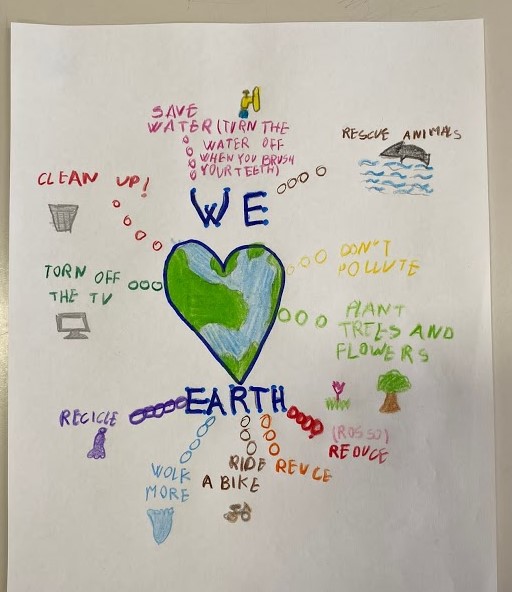 SAVE
WATER (TURN THE
WATER OFF
WHEN YOU BRUSH
YOUR TEETH)
RESCUE ANIMALS
CLEAN UP!
WE
DON'T
POLLUTE
TORN OFF
THE TV
PLANT
TREES AND
FLOWERS
EARTH
RECICLE
(ROSSO)
REDUCE
WOLK
MORE
RIDE
A BIKE
REUCE